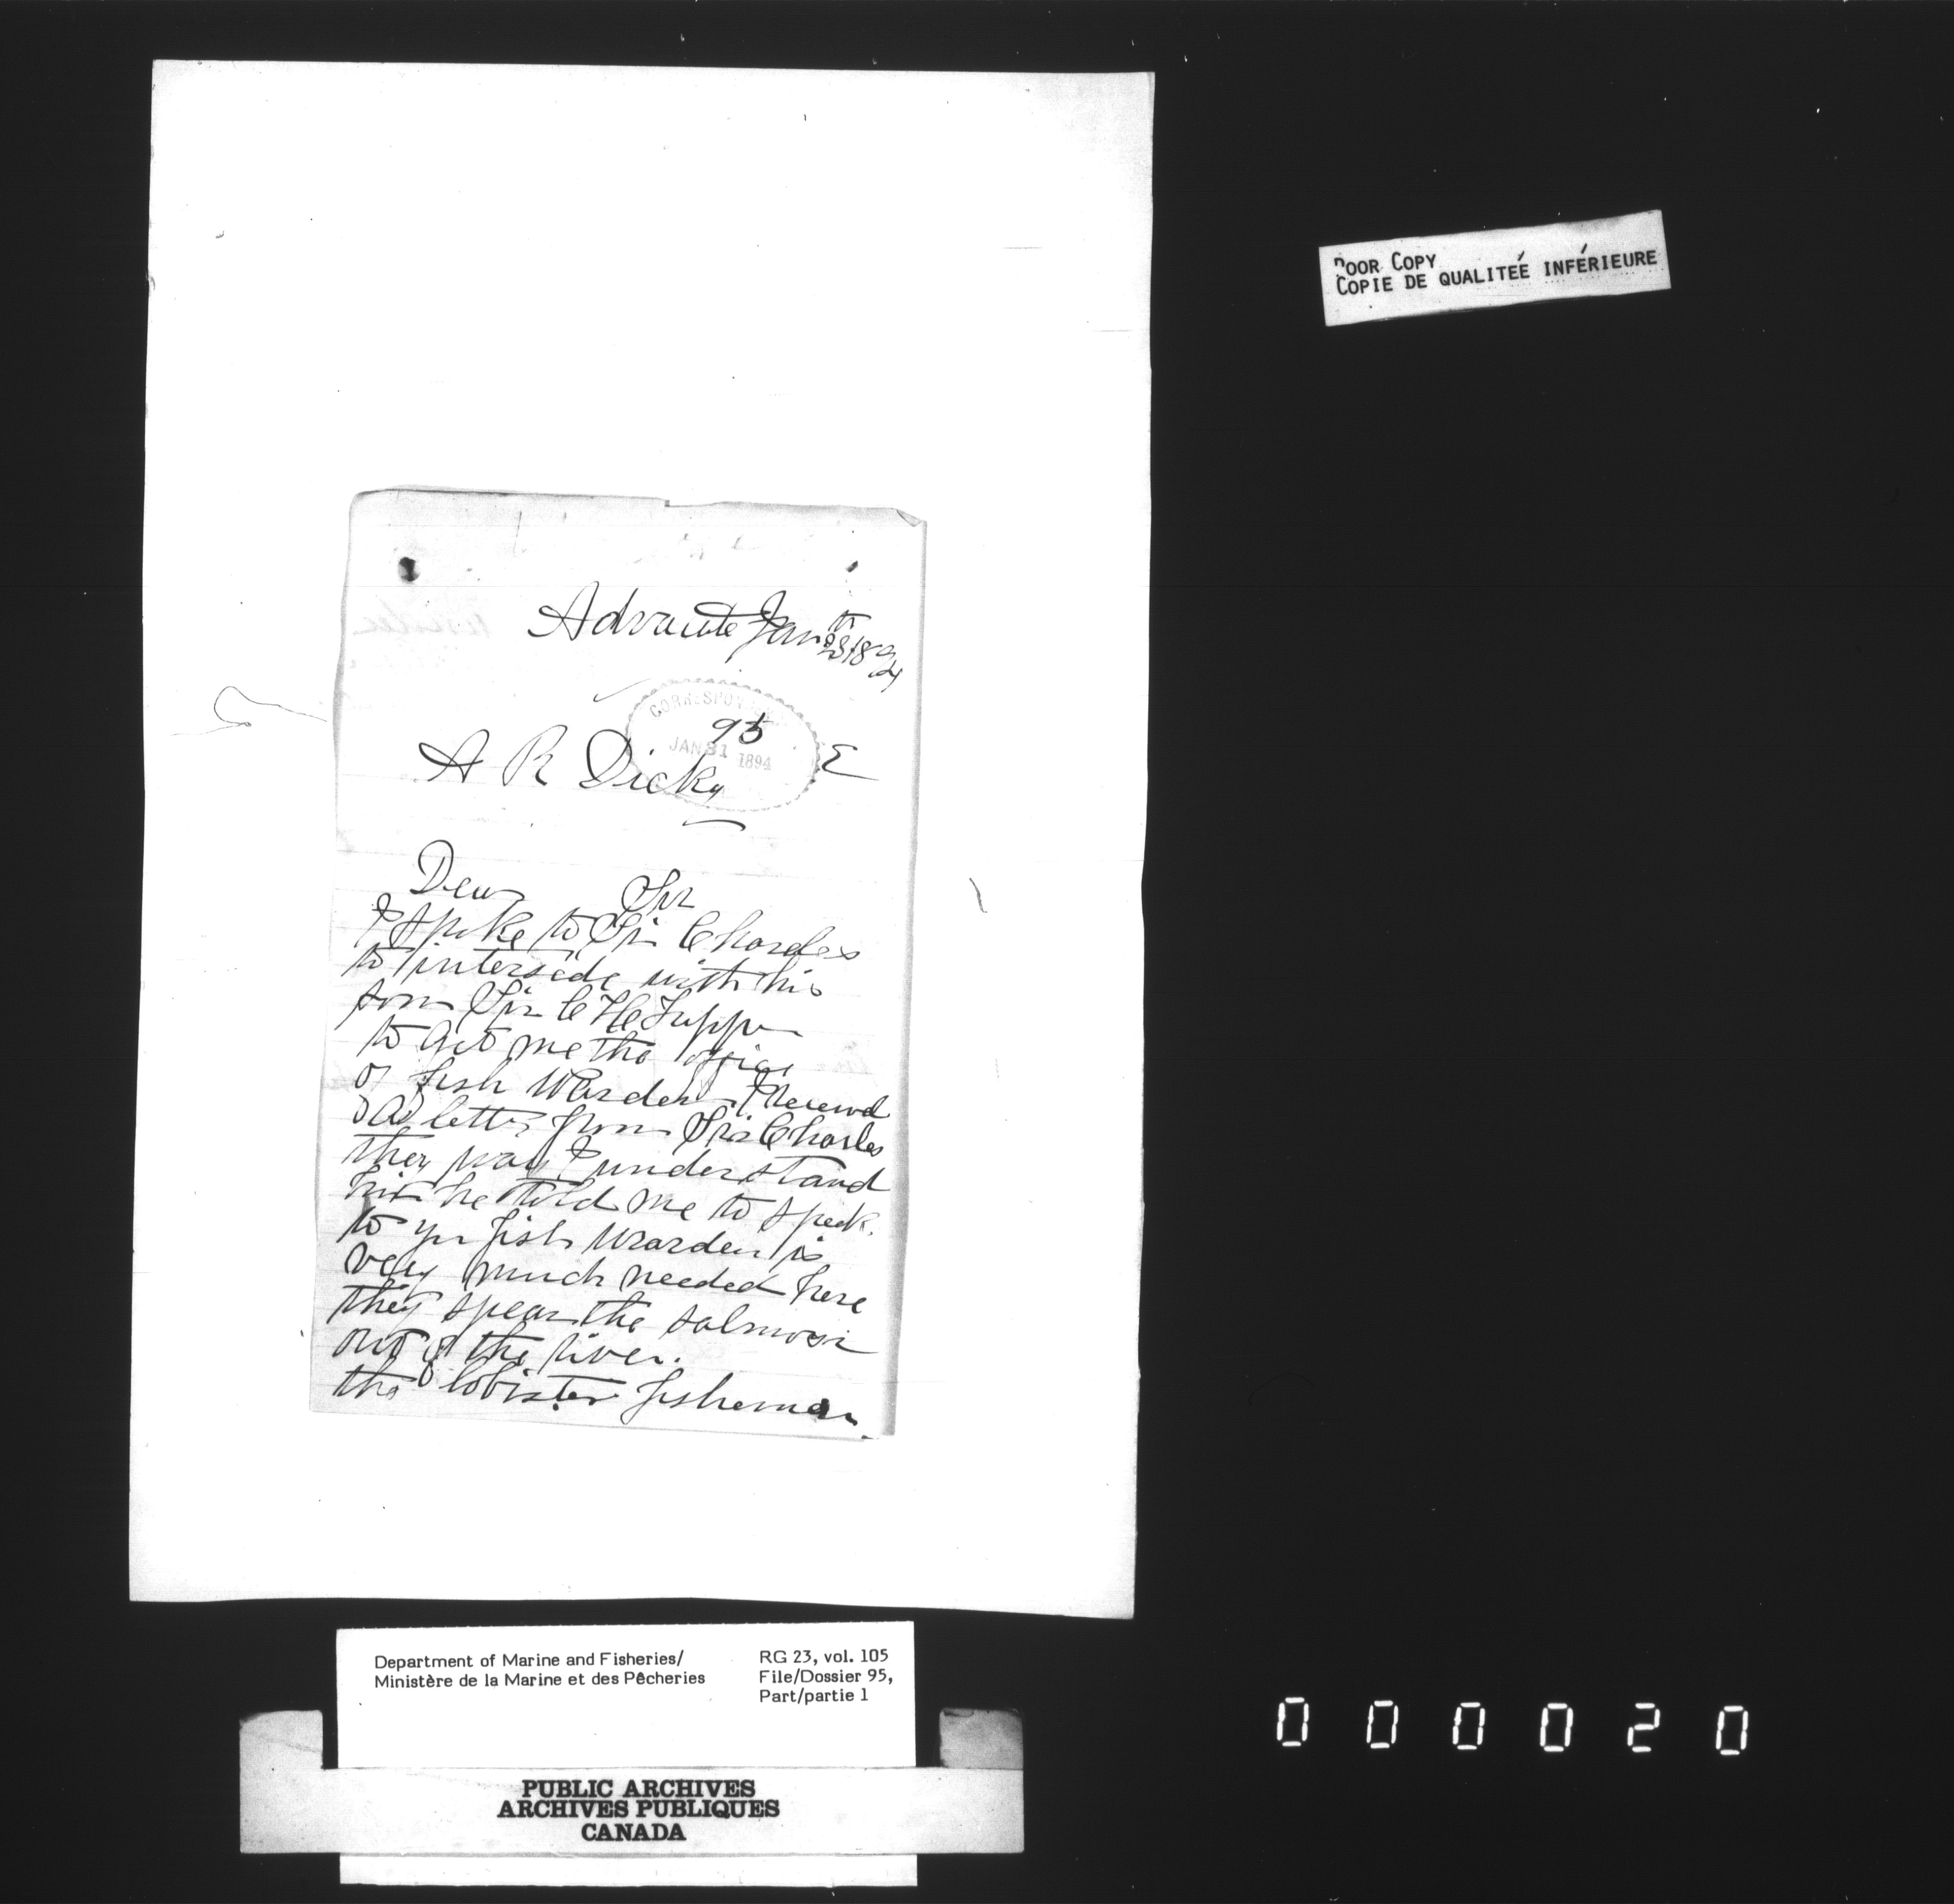 POOR COPY
COPIE DE QUALITEÉ INFÉRIEURE
Advocate Jan 23th 1894
CORRESPONDENCE
95
JAN 31 1894
A R Dicky E
Dear Sir
I spoke to Sir Charles
to interside with his
son Sir C H Tupper
to get me the office
of fish Warden I Received
a letter from Sir Charles
they way I understand
him he told me to speek
to you fish Warden is
very much needed here
they spear the salmon
out of the river.
the lobister fisheman
Department of Marine and Fisheries/
Ministère de la Marine et des Pêcheries
RG 23, vol. 105
File/Dossier 95,
Part/partie 1
PUBLIC ARCHIVES
ARCHIVES PUBLIQUES
CANADA
000020